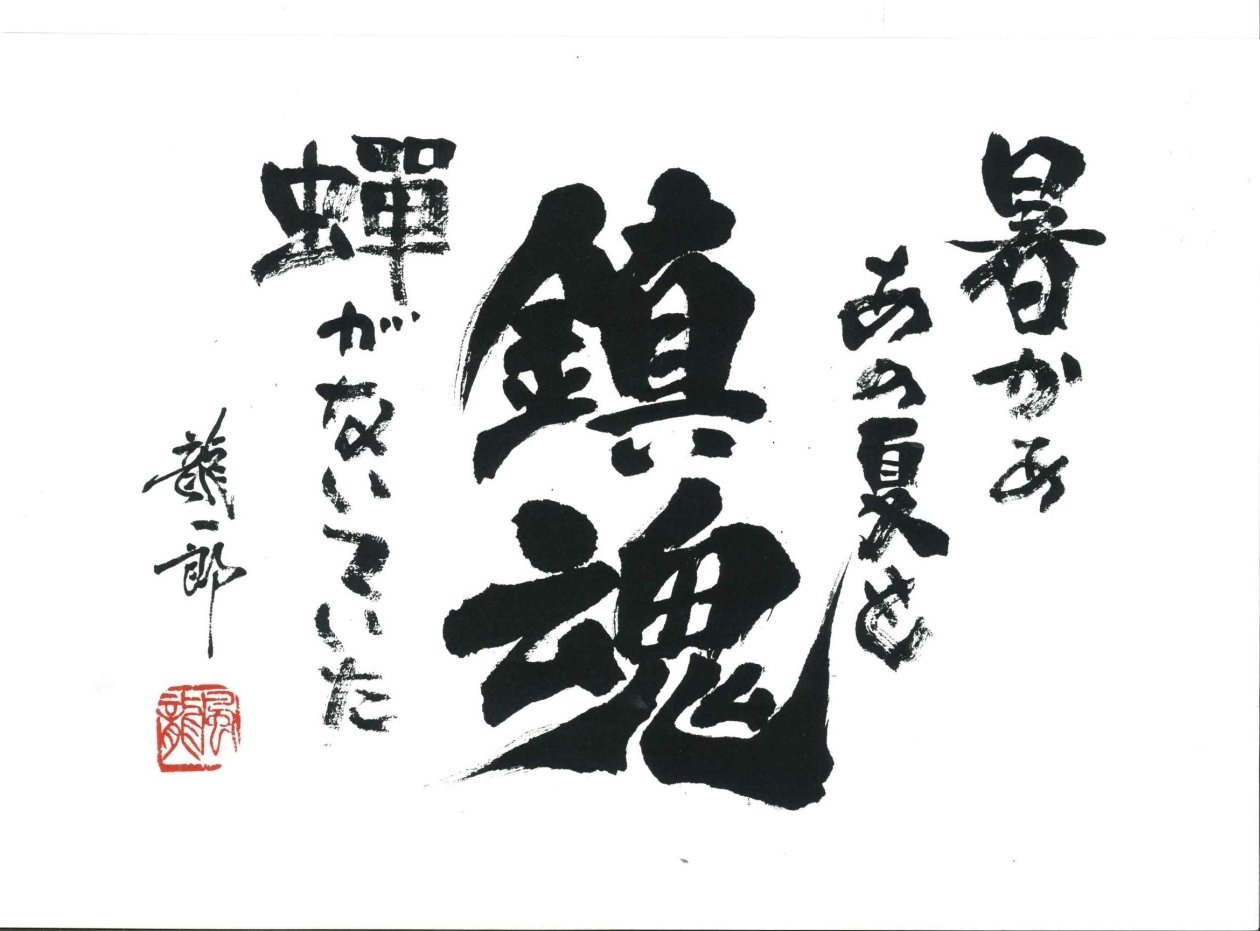 暑かあ
あの夏も
鎮魂
蟬がないていた
龍一郎
風龍